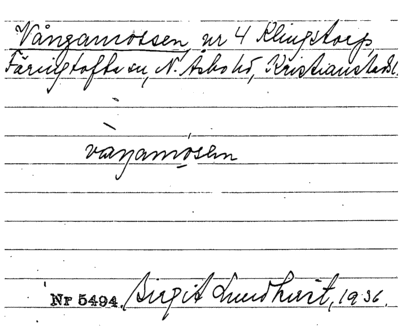 Vångamossen, nr 4 Klingstorp,
Färingtofta sn, N. Åsbo hd, Kristianstads l.
vàŋamósen
Nr 5494. Birgit Lundkvist, 1936.